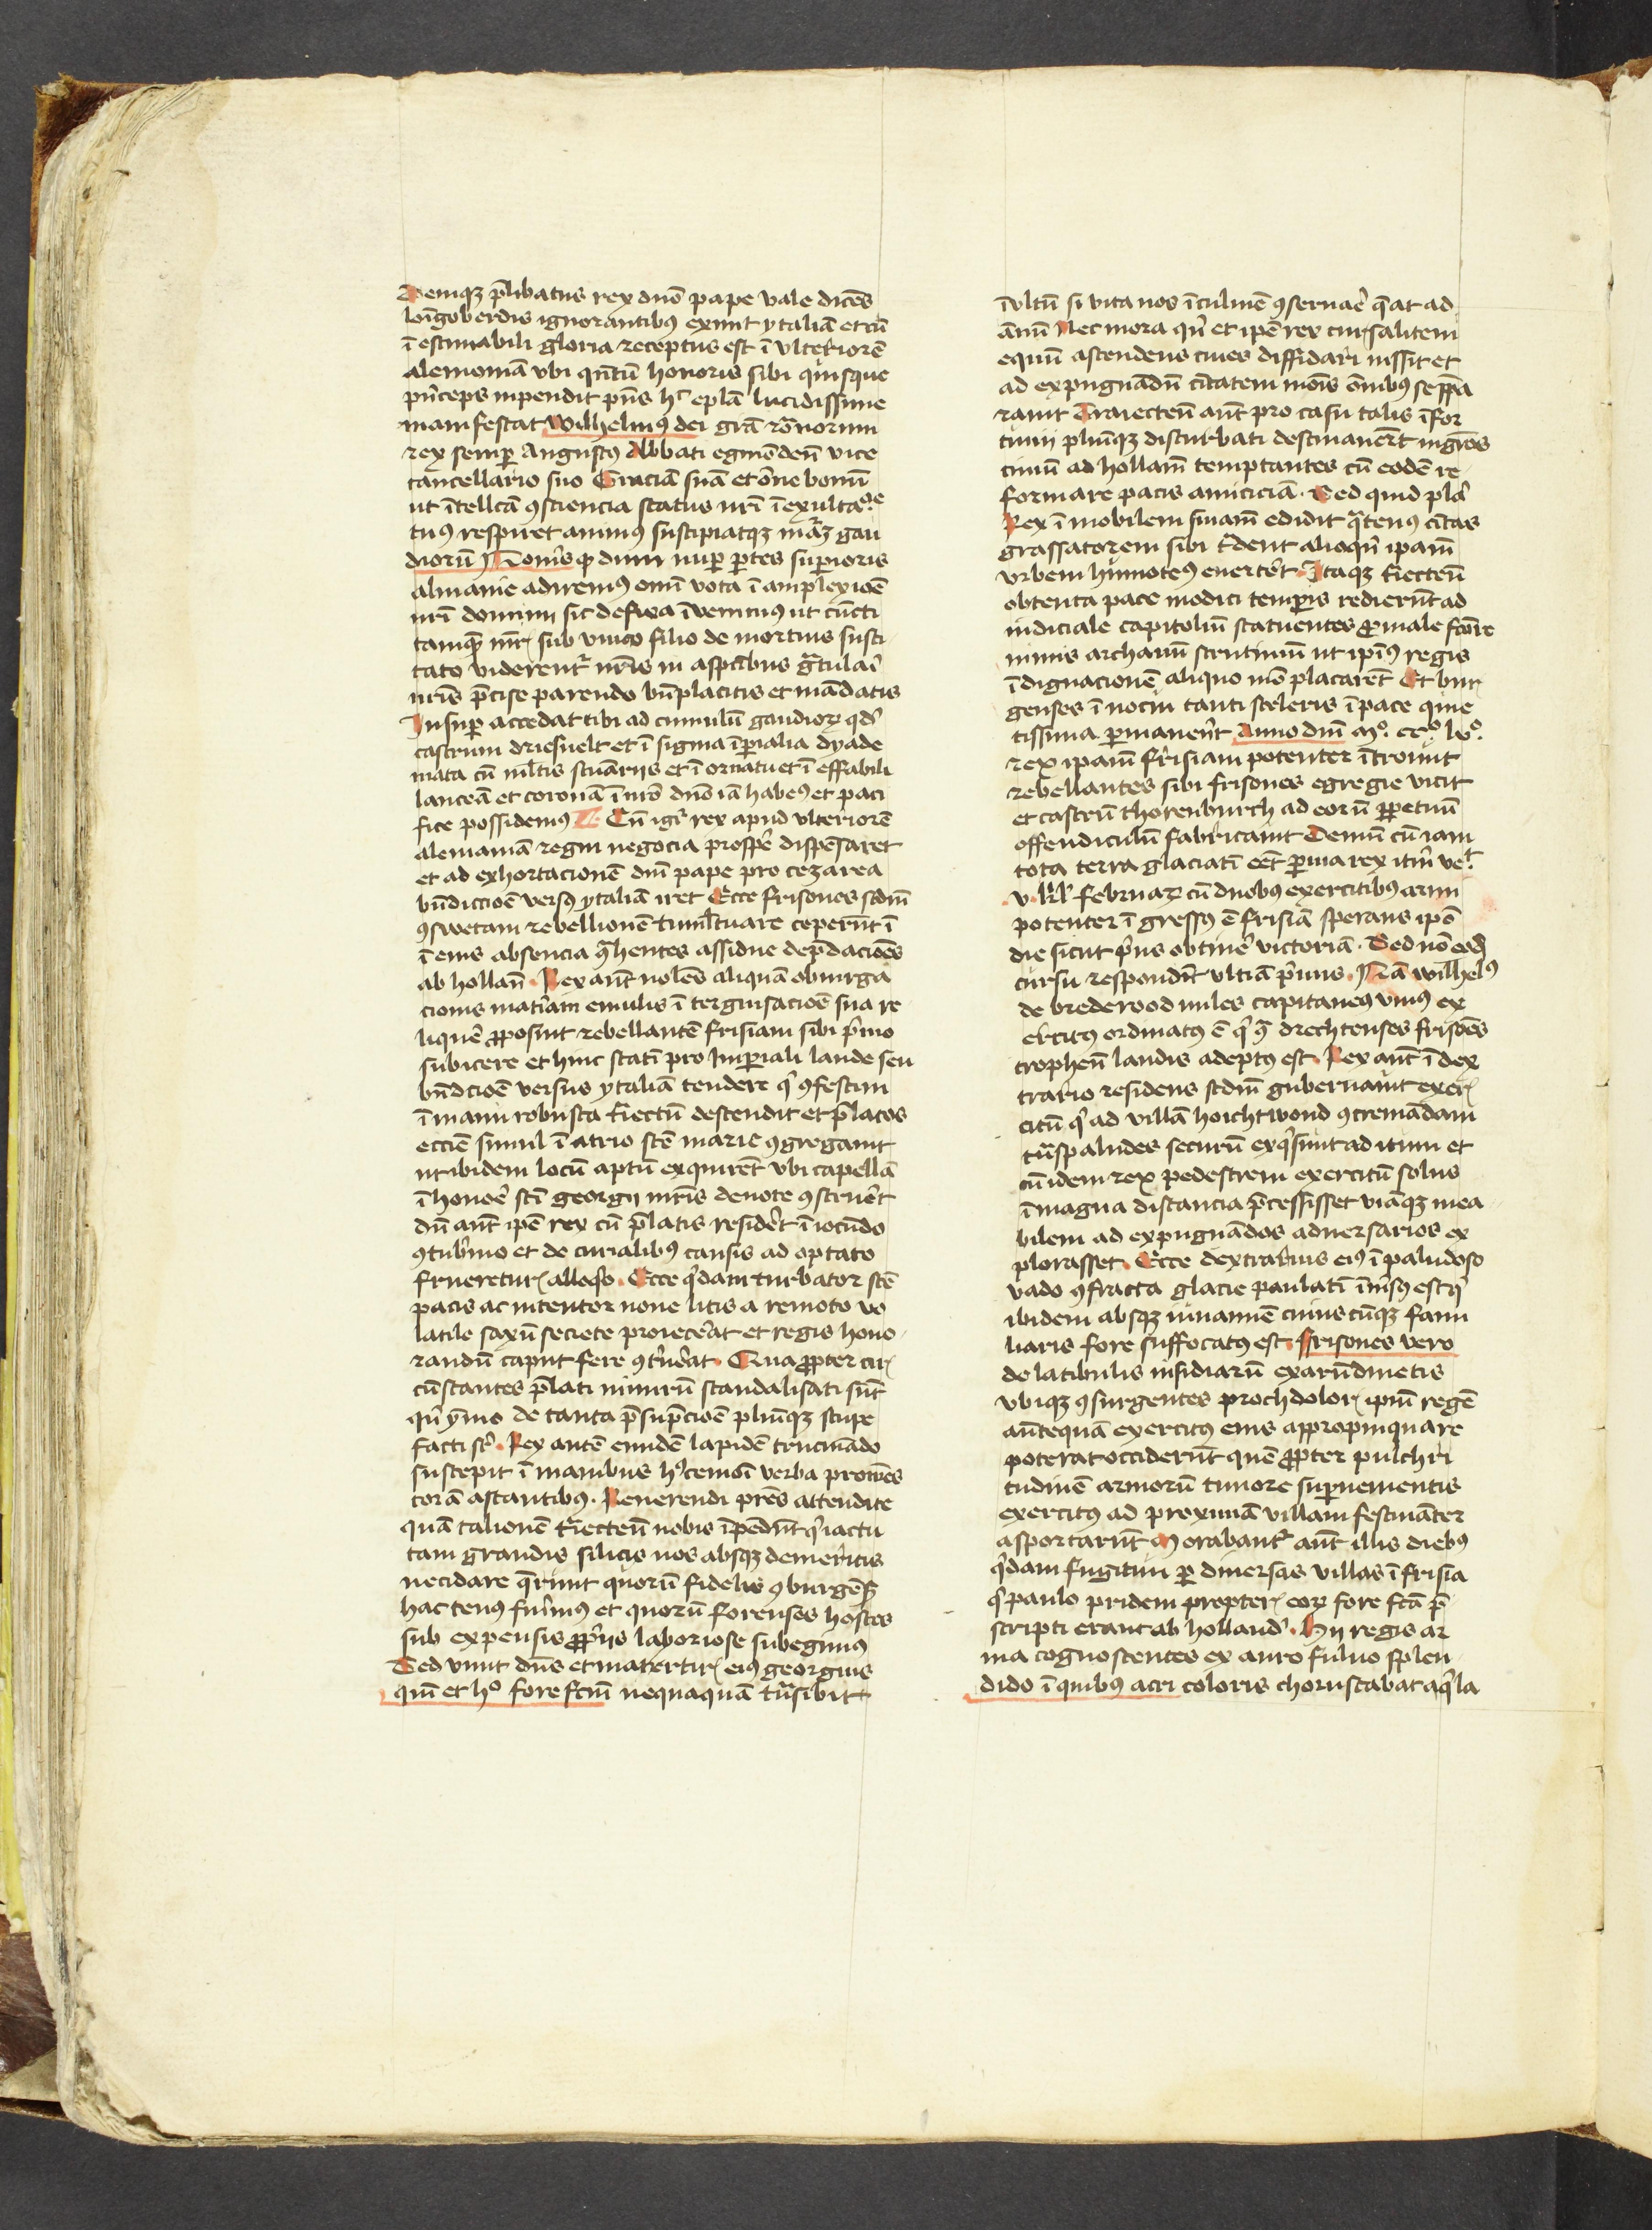 Demqꝫ p̄libatus rex dn̄o pape vale dicēs
lōgoberdis ignorantibꝰ exiuit ytaliā et cū
ī estimabili gloria receptus est ī vlteriorē
alemoniā vbi qn̄tū honoris sibi quisque
pn̄ceps inpendit pn̄s hꝰ epl̄a lucidissime
manifestat Wilhelmꝰ dei grā rōnorum
rex semꝑ Augustꝰ Abbati egmōdeñ vice
cancellario suo Graciā suā et om̄e bonū
ut ītellcā ꝯsciencia status nr̄i ī exultacōe
tuꝰ respiret animꝰ suscipiatqꝫ mārꝫ gau
diorū Noūis ꝙ dum nuꝑ ꝑtes suꝑioris
almanie adiremꝰ om̄i vota ī amplexiōe
nr̄i domini sic defixa īvenimꝰ ut cūcti
tamqā mr̄ sub vnico filio de mortuis susci
tato viderent᷑ nr̄is in aspc̄ibus grātulāi
nr̄is p̄cise parendo bn̄placitis et mādatis
Insuꝑ accedat tibi ad cumulū gaudioꝝ qd̄
castrum driesuelt et ī sigma īꝑialia dyade
mata cū ml̄tis scuāriis et ī ornatu et ī effabili
lanceā et coronā ī nr̄o dn̄io iā habeꝰ et paci
fice possidemꝰ Cū igr̄ rex apud vlteriorē
alemaniā regni negocia prosꝑe dispēsaret
et ad exhortacionē dn̄i pape pro cezarea
bn̄diccōe versꝰ ytaliā iret Ecce frisones scd̄m
ꝯswetam rebellionē tumltuare ceperūt ī
ī eius absencia qāhentes assidue dep̄dacōes
ab hollañ. Rex aūt nolēs aliquā obiurga
cionis mat̄iam emulis ī terguisacōe sua re
liquē ꝓposuit rebellantē frisiam sibi p̄mo
subicere et hinc statī pro Imperiali laude seu
bn̄dccōe versus ytaliā tendere qꝰ ꝯfestim
ī manu robusta t̄iectū descendit et p̄latos
ecclīe simul ī atrio sc̄e marie ꝯgregauit
ut ibidem locū aptū exquirēt vbi capellā
ī honoē sc̄i georgii mr̄is deuote ꝯstruēt
dū aūt ip̄e rex cū p̄latis residēt ī iocūdo
ꝯtubīno et de curialibꝰ causis ad optato
frueretur alloqo. Ecce qdam turbator sc̄e
pacis ac intentor noue litis a remoto vo
latile saxū secrete proiecēat et regis hono
randū caput fere ꝯtuēat. Qua ꝓpter cir
cūstantes p̄lati nimirū scandalisati sūt
qn̄ ymo de tanta p̄supcōe plūqꝫ stupe
facti sūt. Rex autē eundē lapidē trucināado
suscepit ī manibus hꝰcemōi verba prorūpēs
corā astantibꝰ. Reuerendi pr̄es attendite
quā talionē t̄iecteñ nobis īpēdūt qꝰ iactu
tam grandis silicis nos absqꝫ demeritis
necidare qērunt quorū fidelis ꝯburgēs
hactenꝰ fuimꝰ et quorū forenses hostes
sub expensis ꝓpriis laboriose subegimꝰ
Sed viuit dn̄s et martir eiꝰ georgius
qm̄ et hꝰ fore fc̄m nequaquā trāsibit
īvltū si vita nos īculmē ꝯseruaē qēat ad
ānū Nec mora qn̄ et ip̄e rex cursalitem
equū ascendens ciues diffidari iussit et
ad expugnādū ciuitatem mōis om̄ibꝰ se ppa
rauit Traiecteñ aūt pro casu talis īfor
tunii plūqꝫ disturbati destinauerūt ingēos
cuniū ad hollañ temptantes cū eodē re
formare pacis amiciciā. Sed quid pla
Rex īmobilem sūiam edidit qātenꝰ ciuitas
grassatorem sibi t̄dent alioqn̄ ipam
vrbem hūmotenꝰ euerteret. Itaqꝫ t̄iecteñ
obtenta pace modici temꝑis redierūt ad
iudiciale capitoliū statuentes ꝓ male fc̄ore
nimis archanū scrutiniū ut ip̄iꝰ regis
ī dignacionē aliquo mō placarēt Et bur
genses ī nocui tanti sceleris ī pace quie
tissima ꝑmanerēt Anno dn̄i mº. ccº. lvº.
rex ipam frisiam potenter ītrouit
rebellantes sibi frisones egregie vicit
et castrū thorenburch ad eorū ꝑpetuū
offendiculū fabricauit Demū cū iam
tota terra glaciatī eēt ꝑuia rex itm̄ vel
v. kl̄ februaꝝ cū duobꝰ exercitibꝰ arm
potenter ī gressꝰ ē frisiā sperans ipō
die sicut p̄us obtinē victoriā. Sed nō eod
cursu respondit vltīa p̄imis. Nā wilhelꝰ
de brederood miles capitaneꝰ vniꝰ ex
ercitꝰ ordinatꝰ ē qꝰ qā drechtenses frisōes
tropheū laudis adeptꝰ est. Rex aūt ī dex
trario residens scd̄m gubernauit exer
citū qꝰ ad villā hoichtwoud ꝯcremādam
trās paludes securū exqꝰsiuit aditum et
cū idem rex pedestrem exercitū solus
ī magna distancia p̄cessisset viāqꝫ mea
bilem ad expugnādos aduersarios ex
plorasset. Ecce dextrarius eiꝰ ī paludoso
vado ꝯfracta glacie paulatī īmsꝰ est qꝰ
ibidem absqꝫ iuuamīe cuiuscūqꝫ fami
liaris fore suffocatꝰ est Frisones vero
de latibulis insidiarū exarūdinetis
vbiqꝫ ꝯsurgentes proch dolor ipm̄ regē
aūtequā exercitꝰ eius appropinquare
poterat occiderūt quē ꝓpter pulchri
tudinē armorū timore suꝑuenientis
exercitꝰ ad proximā villam festināter
asportarūt Morabant᷑ aūt illis diebꝰ
qdam fugitiui ꝑ diuersas villas ī frisia
qꝰ paulo pridem propter eoꝝ fore fc̄a p̄
scripti erant ab holland. Hii regis ar
ma cognoscentes ex auro fuluo splen
dido ī quibꝰ acri coloris choruscabat aqꝰla